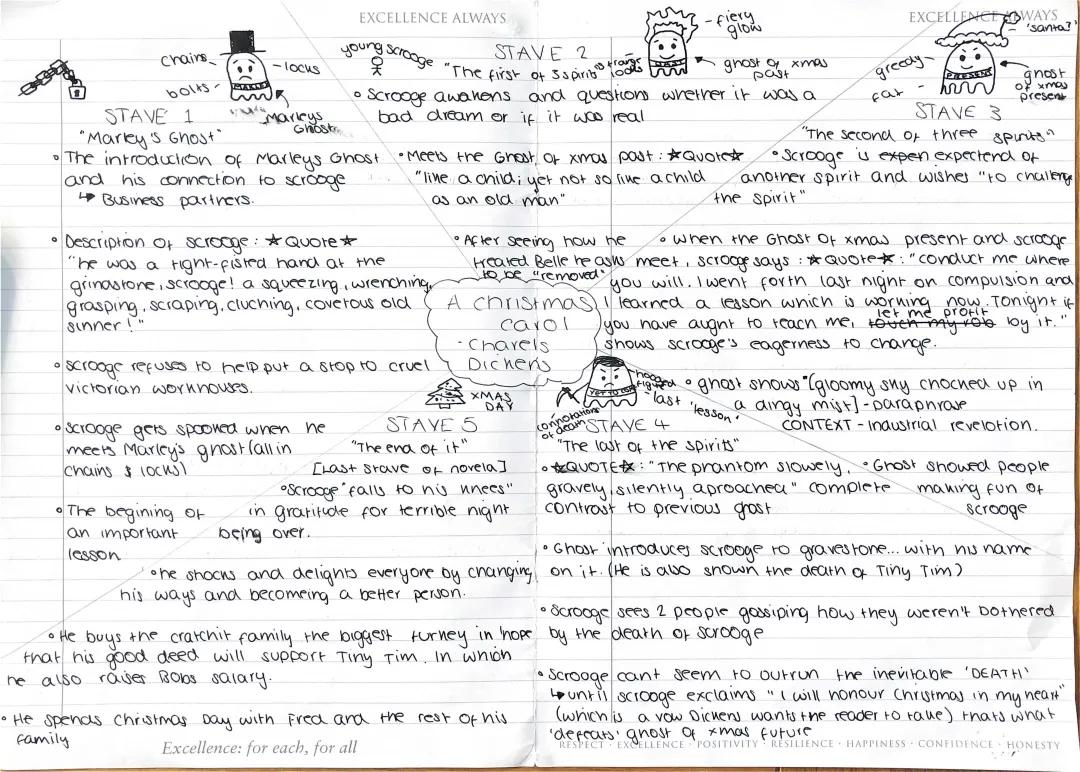 EXCELLENCE ALWAYS
EXCELLENCE ALWAYS
chains
locks
bolts
Marleys
Ghost
STAVE 1
"Marley's Ghost"
• The introduction of Marleys Ghost
and his connection to scrooge
↳ Business partners.
• Description of scrooge: ★QUOTE★
"he was a tight-fisted hand at the
grindstone, scrooge! a squeezing, wrenching,
grasping, scraping, cluching, covetous old
sinner!"
• scrooge refuses to help put a stop to cruel
victorian workhouses.
• scrooge gets spooked when he
meets Marley's ghost (all in
chains & locks)
• The begining of
an important
lesson
young scrooge
STAVE 2
"The first of 3 spirits"
strange
looks
fiery
glow
ghost of xmas
past
• Scrooge awakens and questions whether it was a
bad dream or if it was real
• Meets the Ghost of xmas past: ★QUOTE★
"like a child; yet not so like a child
as an old man"
• After seeing how he
treated Belle he asks
to be "removed"
'santa?'
greedy
fat
PRESENT
ghost
of xmas
present
STAVE 3
"The second of three spirits"
• Scrooge is expen expectend of
another spirit and wishes "to challenge
the spirit"
• when the Ghost of xmas present and scrooge
meet, scrooge says: ★QUOTE★: "conduct me where
you will. I went forth last night on compulsion and
I learned a lesson which is working now. Tonight if
let me profit
you have aught to teach me, touch my rob by it."
shows scrooge's eagerness to change.
• ghost shows "[gloomy sky chocked up in
a dingy mist] - paraphrase
CONTEXT - Industrial revelotion.
A christmas
carol
- Charels
Dickens
XMAS
DAY
STAVE 5
"The end of it"
[Last stave of novela]
• Scrooge "falls to his knees"
in gratitude for terrible night
being over.
• he shocks and delights everyone by changing
his ways and becomeing a better person.
• He buys the cratchit family the biggest turkey in hope
that his good deed will support Tiny Tim. In which
he also raises Bobs salary.
• He spends Christmas Day with Fred and the rest of his
family
YET TO COME
hooded
figure
last 'lesson'
connotations
of death
STAVE 4
"The last of the spirits"
• ★QUOTE★: "The phantom slowly,
gravely, silently aproached" complete
contrast to previous ghost
• Ghost showed people
making fun of
scrooge
• Ghost introduces scrooge to gravestone... with his name
on it. (He is also shown the death of Tiny Tim)
• Scrooge sees 2 people gossiping how they weren't bothered
by the death of scrooge
• Scrooge cant seem to outrun the inevitable 'DEATH'
↳ until scrooge exclaims "I will honour Christmas in my heart"
(which is a vow Dickens wants the reader to take) thats what
'defeats' ghost of xmas future
Excellence: for each, for all
RESPECT · EXCELLENCE · POSITIVITY · RESILIENCE · HAPPINESS · CONFIDENCE · HONESTY